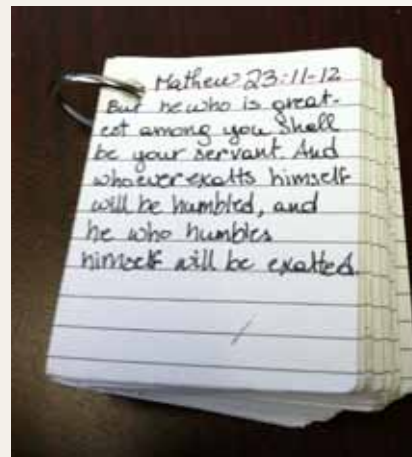 Mathew 23:11-12
But he who is great-
est among you Shall
be your servant. And
whoever exalts himself
will be humbled, and
he who humbles
himself will be exalted.